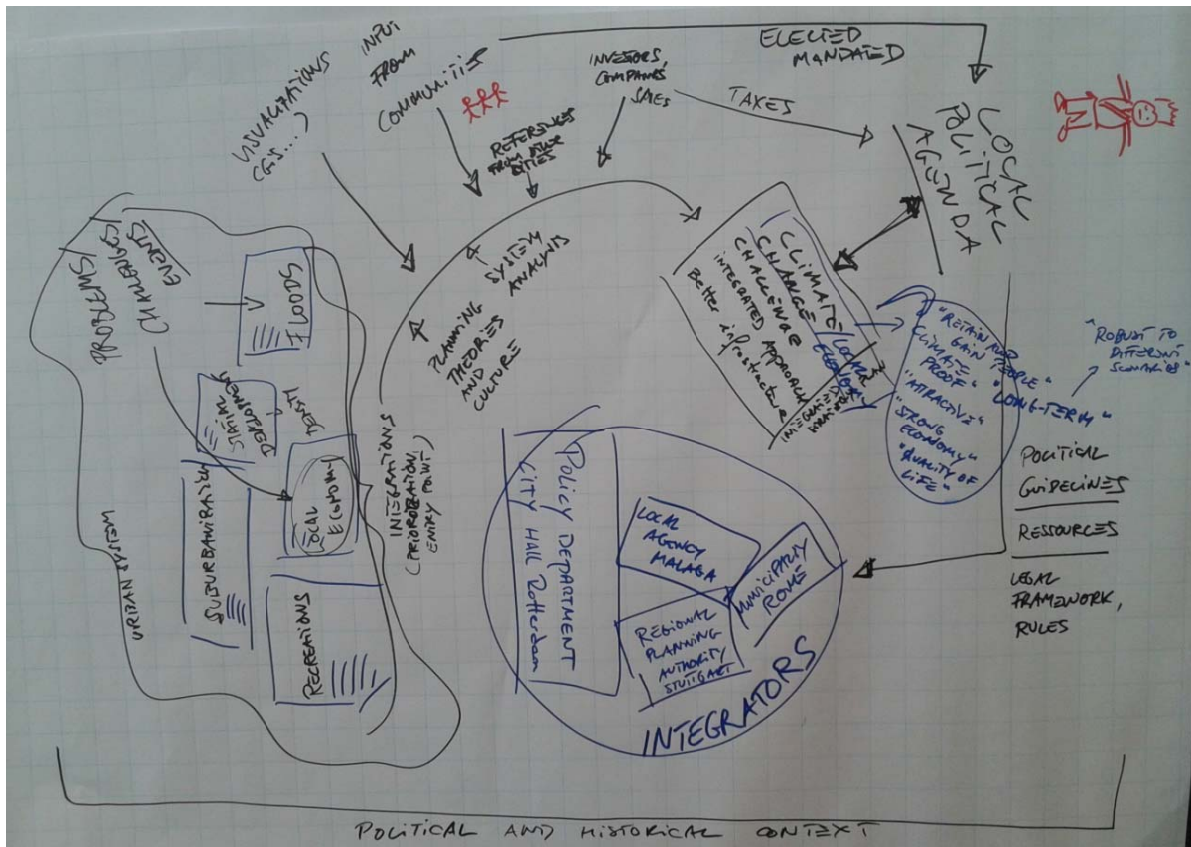 VISUALIZATIONS
INPUT
FROM
COMMUNITIES
REFERENCES
FROM OTHER
CITIES
INVESTORS,
COMPANIES
TAXES
ELECTED
MANDATED
LOCAL
POLITICAL
AGENDA
PROBLEMS/
CHALLENGES
EVENTS
FLOODS
SPATIAL
DEVELOPMENT
DENSITY
SUBURBANIZATION
LOCAL
ECONOMY
RECREATIONS
URBAN SYSTEM
INTEGRATIONS
ENTRY POINT)
PLANNING
THEORIES
AND
CULTURE
SYSTEM
ANALYSIS
CLIMATE
CHANGE
CHALLENGE
INTEGRATED APPROACH
Better infrastructure
INTEGRATED
"RETAIN AND
GAIN PEOPLE"
CLIMATE
PROOF"
"ATTRACTIVE"
"LONG-TERM"
"STRONG
ECONOMY"
"QUALITY OF
LIFE"
"ROBUST TO
DIFFERENT
SCENARIOS"
POLITICAL
GUIDELINES
RESSOURCES
LEGAL
FRAMEWORK,
RULES
POLICY DEPARTMENT
CITY HALL Rotterdam
LOCAL
AGENCY
MALAGA
MUNICIPALITY
ROME
REGIONAL
PLANNING
AUTHORITY
STUTTGART
INTEGRATORS
POLITICAL AND HISTORICAL CONTEXT